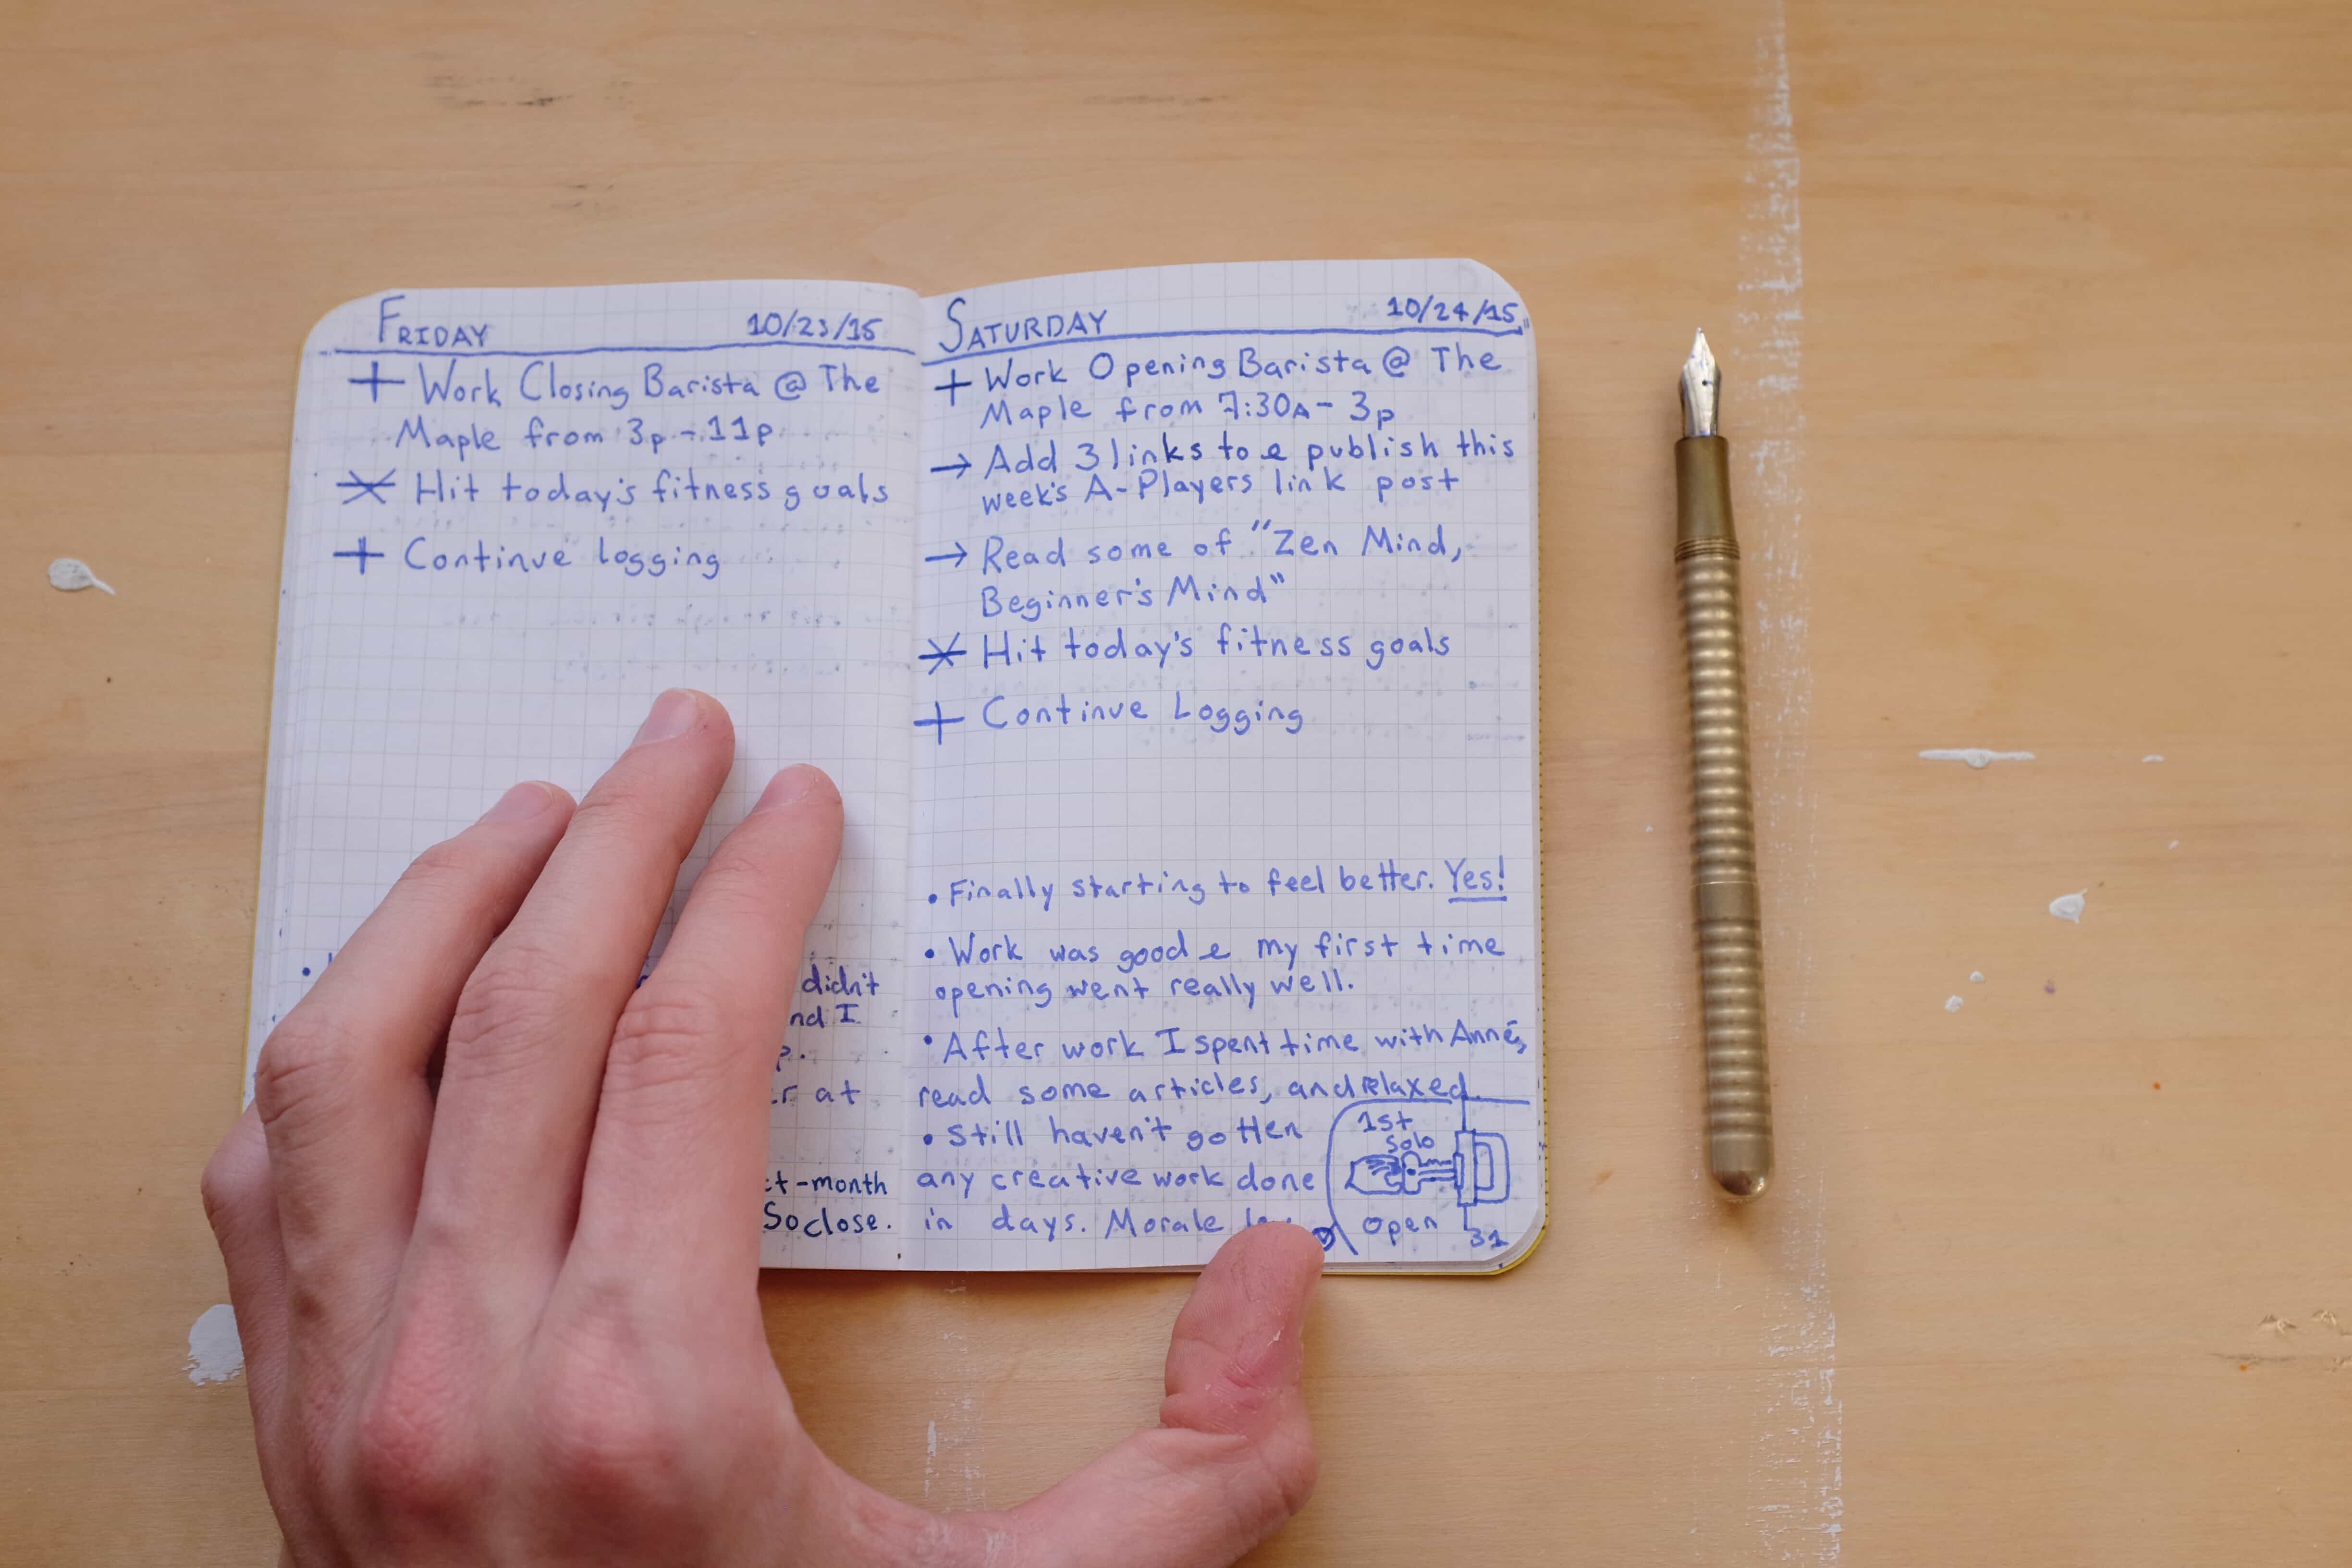 FRIDAY 10/23/15
+ Work Closing Barista @ The
Maple from 3p - 11p
Hit today's fitness goals
+ Continue logging
didn't
nd I
p.
er at
ct-month
So close.
SATURDAY 10/24/15
+ Work Opening Barista @ The
Maple from 7:30A - 3p
→ Add 3 links to & publish this
week's A-Players link post
→ Read some of "Zen Mind,
Beginner's Mind"
Hit today's fitness goals
+ Continue Logging
• Finally starting to feel better. Yes!
• Work was good & my first time
opening went really well.
• After work I spent time with Anné,
read some articles, and relaxed.
• Still haven't gotten
any creative work done
in days. Morale
1st
Solo
open
31